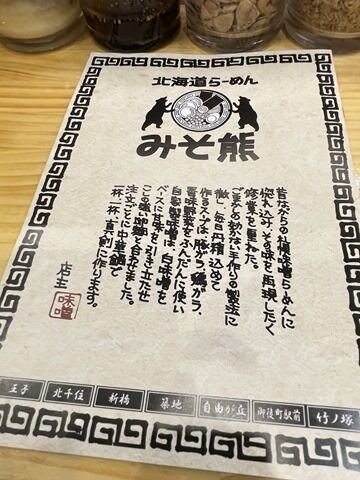 北海道らーめん
みそ熊
昔ながらの札幌味噌らーめんに
惚れ込み、その味を再現したく
修業を重ねた。
ごまかの効かない手作りの製法に
徹し、毎日丹精込めて
作るスープは、豚がら、鶏がら、
香味野菜をふんだんに使い
自家製味噌は、白味噌を
ベースに甘味を引き立たせ
こしの強い卵麺と合わせました。
注文ごとに中華鍋で
一杯一杯、真剣に作ります。
店主
味噌
王子
北千住
新橋
築地
自由が丘
御徒町駅前
竹ノ塚